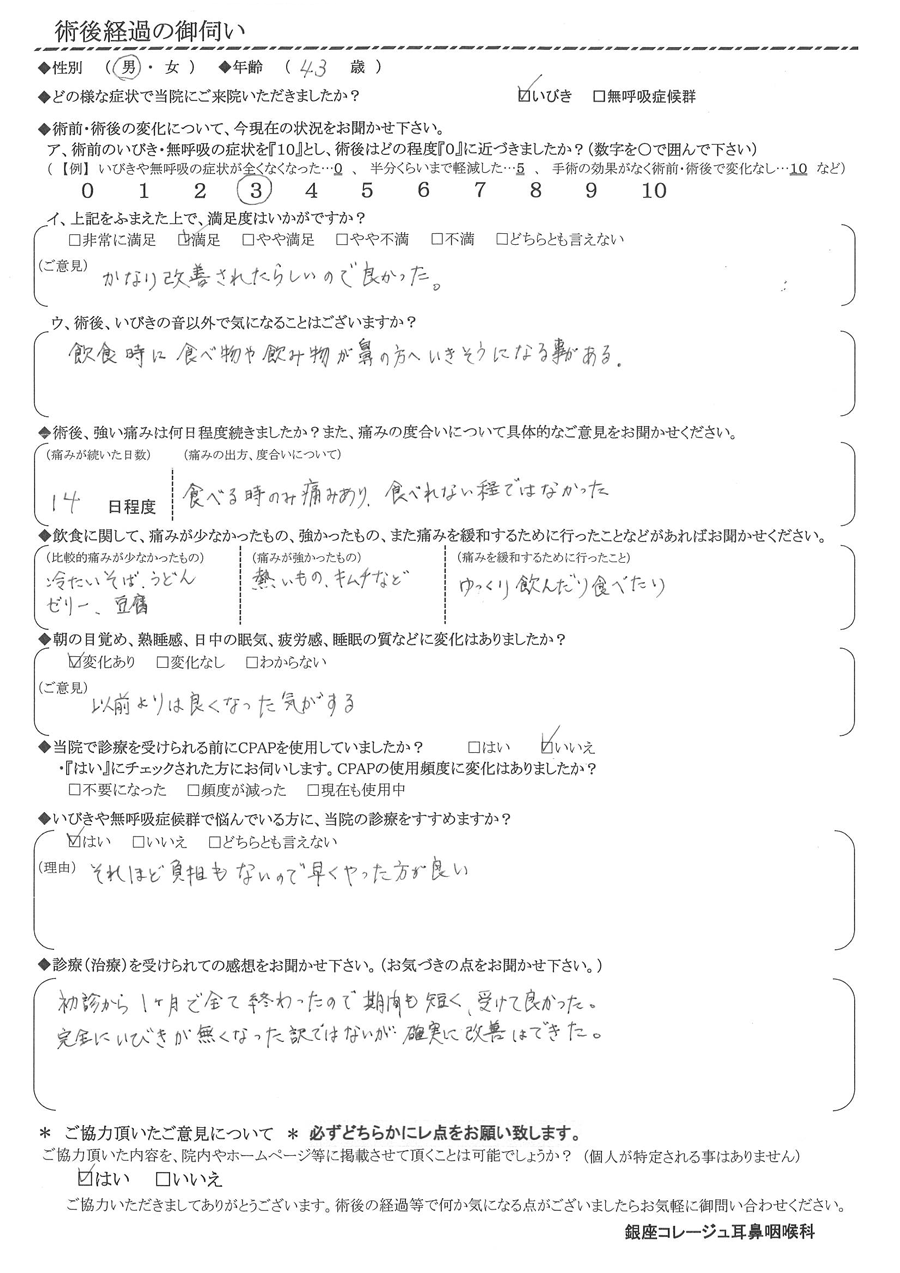 術後経過の御伺い
◆性別 （ 男 ・ 女 ） ◆年齢 （ 43 歳 ）
◆どの様な症状で当院にご来院いただきましたか？ ☑いびき □無呼吸症候群
◆術前・術後の変化について、今現在の状況をお聞かせ下さい。
ア、術前のいびき・無呼吸の症状を『10』とし、術後はどの程度『0』に近づきましたか？（数字を〇で囲んで下さい）
（【例】 いびきや無呼吸の症状が全くなくなった…0 、 半分くらいまで軽減した…5 、 手術の効果がなく術前・術後で変化なし…10 など）
0 1 2 3 4 5 6 7 8 9 10
イ、上記をふまえた上で、満足度はいかがですか？
□非常に満足 ☑満足 □やや満足 □やや不満 □不満 □どちらとも言えない
（ご意見） かなり改善されたらしいので良かった。
ウ、術後、いびきの音以外で気になることはございますか？
飲食時に食べ物や飲み物が鼻の方へいきそうになる事がある.
◆術後、強い痛みは何日程度続きましたか？また、痛みの度合いについて具体的なご意見をお聞かせください。
（痛みが続いた日数） （痛みの出方、度合いについて）
14 日程度 食べる時のみ痛みあり、食べれない程ではなかった
◆飲食に関して、痛みが少なかったもの、強かったもの、また痛みを緩和するために行ったことなどがあればお聞かせください。
（比較的痛みが少なかったもの） （痛みが強かったもの） （痛みを緩和するために行ったこと）
冷たいそば、うどん 熱いもの、キムチなど ゆっくり飲んだり食べたり
ゼリー、豆腐
◆朝の目覚め、熟睡感、日中の眠気、疲労感、睡眠の質などに変化はありましたか？
☑変化あり □変化なし □わからない
（ご意見） 以前よりは良くなった気がする
◆当院で診療を受けられる前にCPAPを使用していましたか？ □はい ☑いいえ
・『はい』にチェックされた方にお伺いします。CPAPの使用頻度に変化はありましたか？
□不要になった □頻度が減った □現在も使用中
◆いびきや無呼吸症候群で悩んでいる方に、当院の診療をすすめますか？
☑はい □いいえ □どちらとも言えない
（理由） それほど負担もないので早くやった方が良い
◆診療（治療）を受けられての感想をお聞かせ下さい。（お気づきの点をお聞かせ下さい。）
初診から1ヶ月で全て終わったので期間も短く、受けて良かった。
完全にいびきが無くなった訳ではないが確実に改善はできた。
＊ ご協力頂いたご意見について ＊ 必ずどちらかにレ点をお願い致します。
ご協力頂いた内容を、院内やホームページ等に掲載させて頂くことは可能でしょうか？ （個人が特定される事はありません）
☑はい □いいえ
ご協力いただきましてありがとうございます。術後の経過等で何か気になる点がございましたらお気軽に御問い合わせください。
銀座コレージュ耳鼻咽喉科